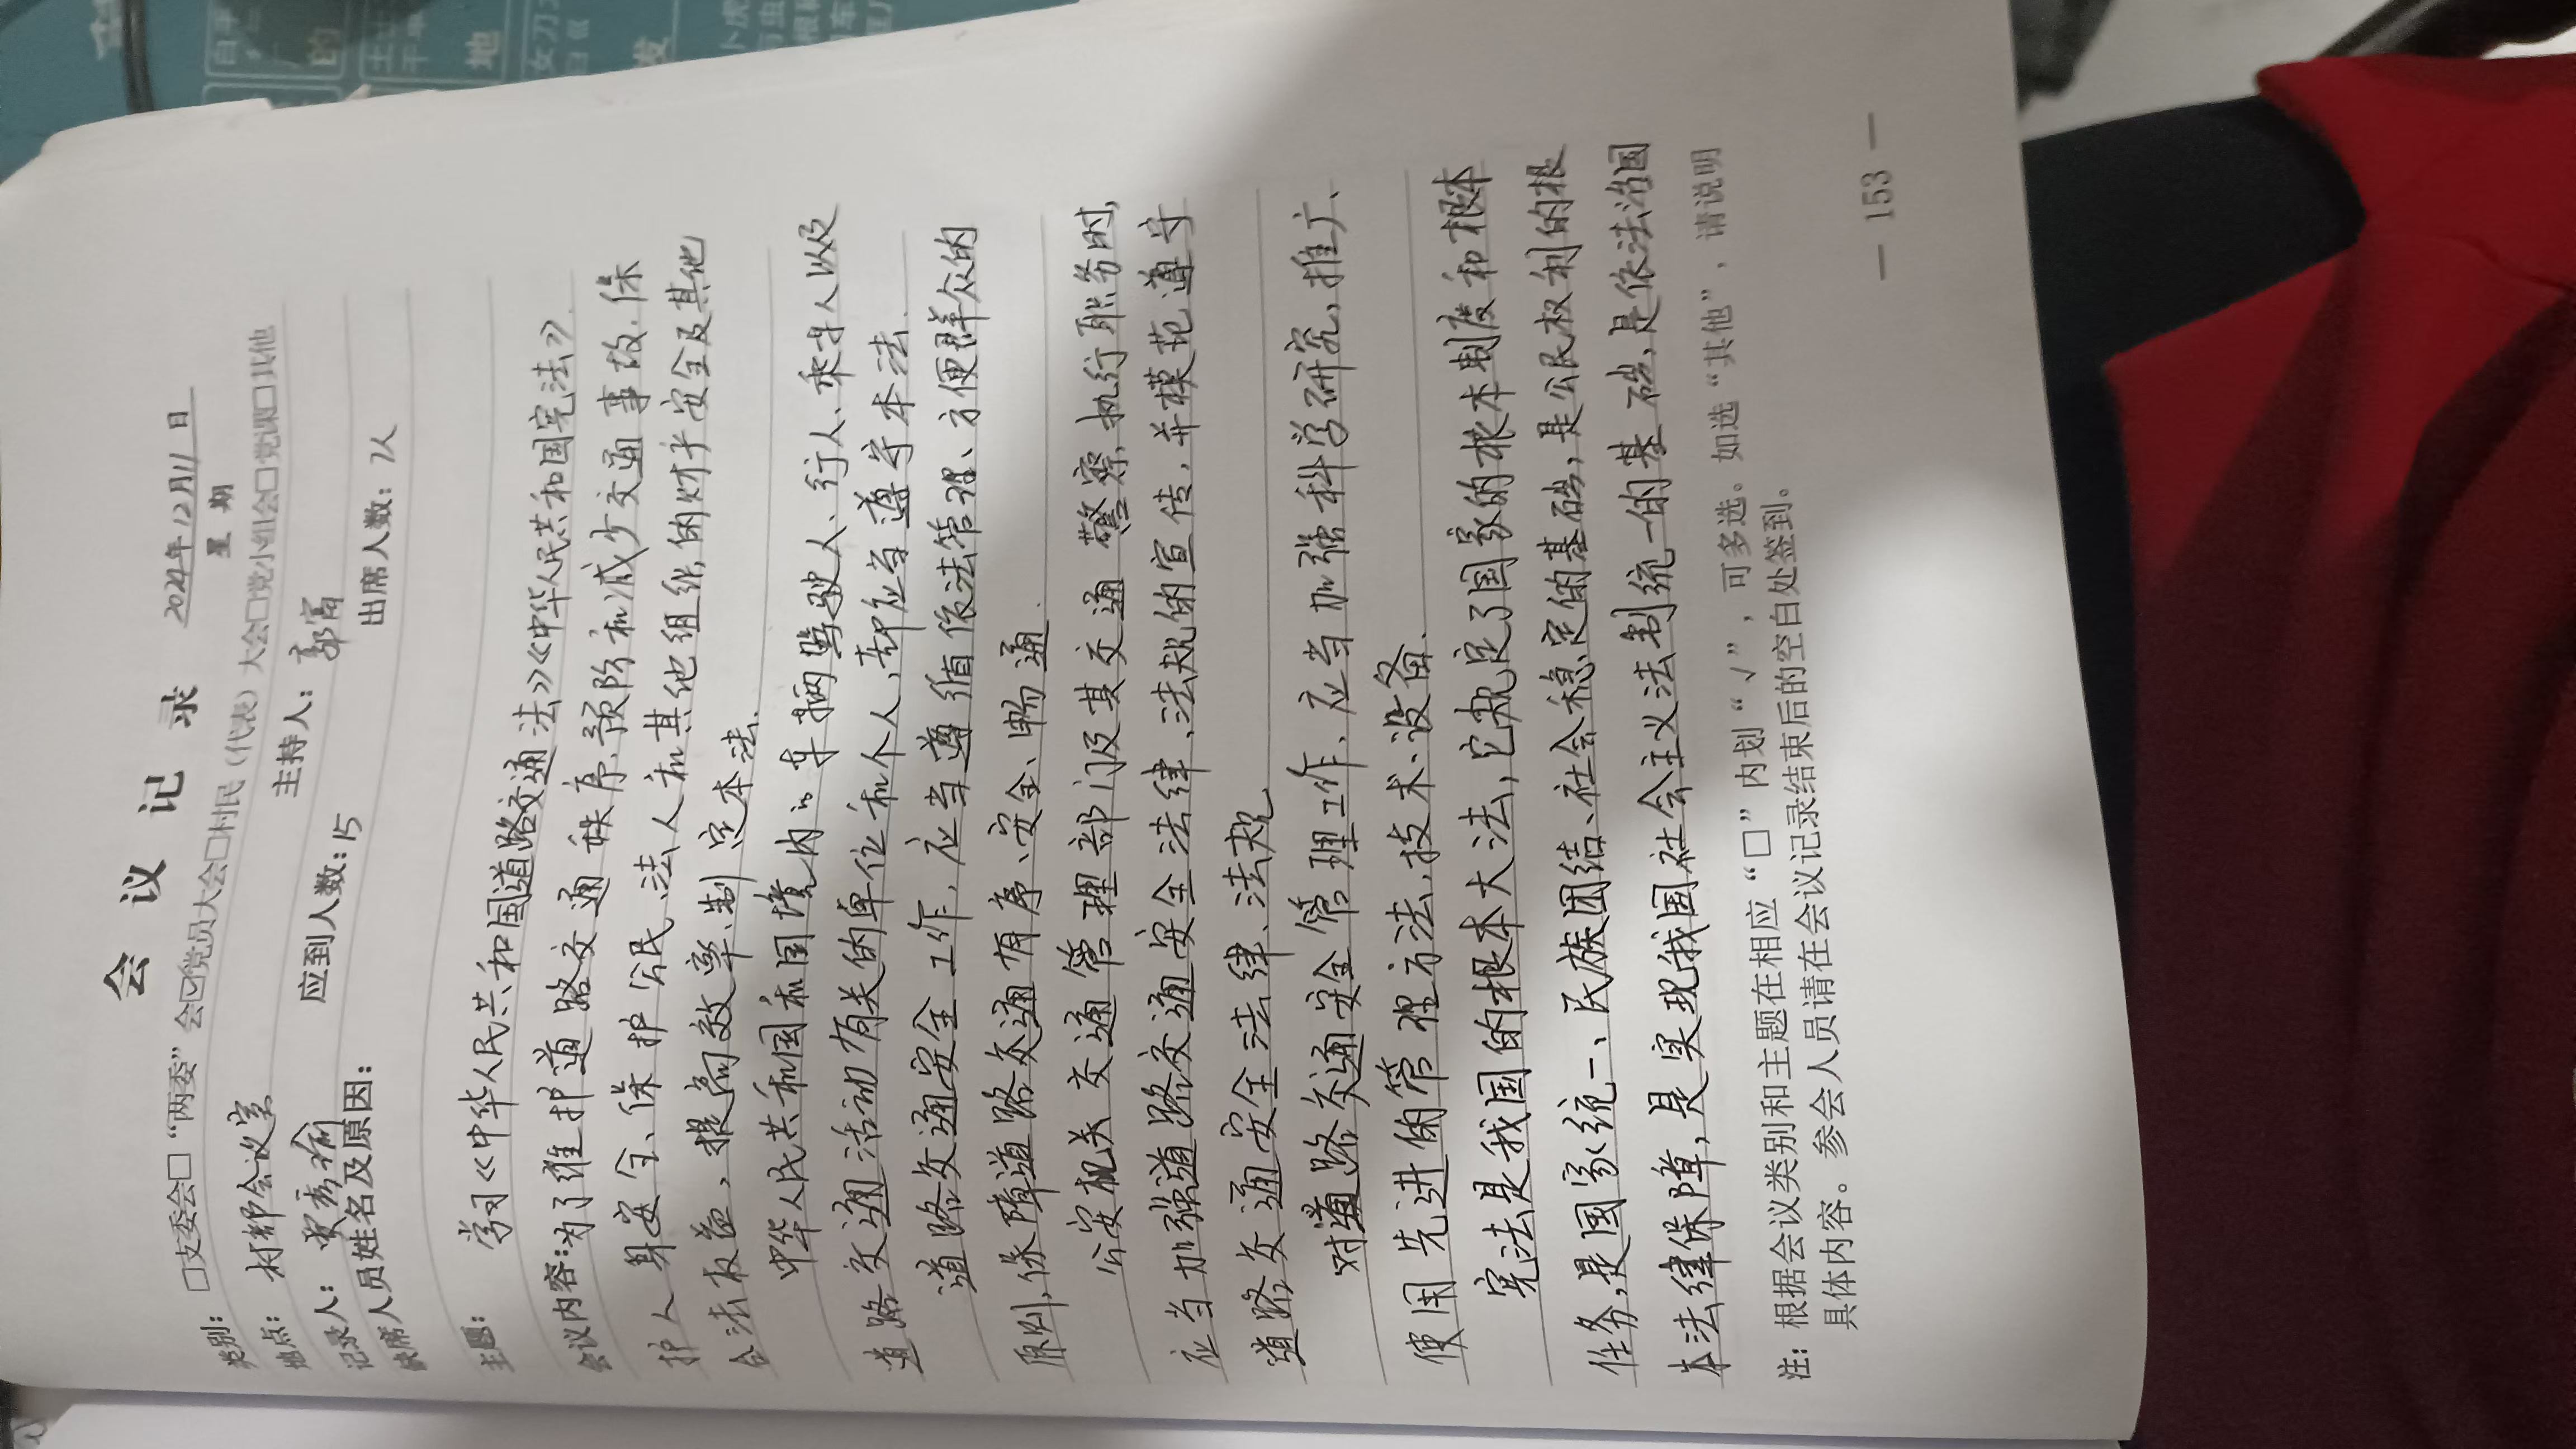 会 议 记 录
2024年12月11日
星 期
类别： □支委会□“两委”会☑党员大会□村民（代表）大会□党小组会□党课□其他
地点： 村部会议室 主持人：郭富
记录人： 应到人数：15 出席人数：
缺席人员姓名及原因：
主题： 学习《中华人民共和国道路交通法》《中华人民共和国宪法》.
会议内容：为了维护道路交通秩序、预防和减少交通事故.保
护人身安全、保护公民、法人和其他组织的财产安全及其他
合法权益，提高效率、制定本法.
中华人民共和国和国境内的车辆驾驶人、行人、乘车人以及
道路交通活动有关的单位和个人，都应当遵守本法.
道路交通安全工作，应当遵循依法管理、方便群众的
原则，保障道路交通有序、安全、畅通.
公安机关交通管理部门及其交通警察，执行职务时，
应当加强道路交通安全法律、法规的宣传，并模范遵守
道路交通安全法律、法规
对道路交通安全管理工作，应当加强科学研究，推广、
使用先进的管理方法、技术、设备.
宪法是我国的根本大法，它规定了国家的根本制度和根本
任务，是国家统一、民族团结、社会稳定的基础，是公民权利的根
本法律保障，是实现我国社会主义法制统一的基础，是依法治国
注：根据会议类别和主题在相应“□”内划“√”，可多选。如选“其他”，请说明
具体内容。参会人员请在会议记录结束后的空白处签到。
— 153 —